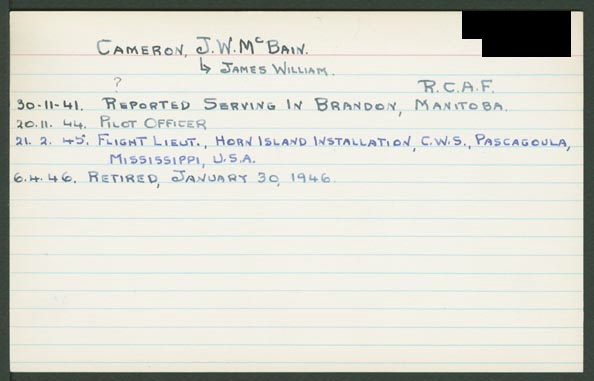 CAMERON, J.W. McBAIN.
↳ JAMES WILLIAM.
? R.C.A.F.
30-11-41. REPORTED SERVING IN BRANDON, MANITOBA.
20.11. 44. PILOT OFFICER
21. 2. 45. FLIGHT LIEUT., HORN ISLAND INSTALLATION, C.W.S., PASCAGOULA,
MISSISSIPPI, U.S.A.
6.4.46. RETIRED, JANUARY 30, 1946.